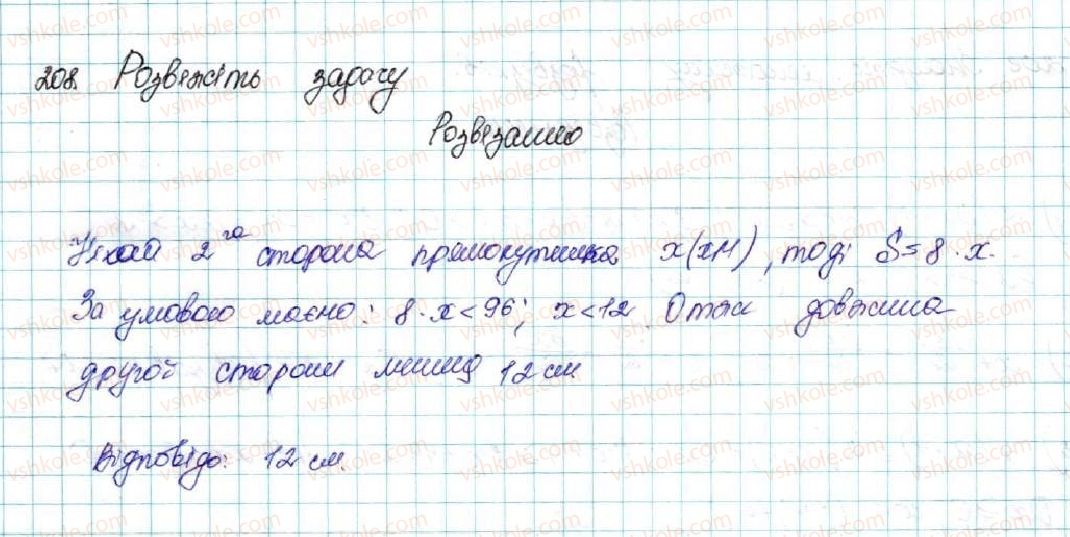 208. Розвяжіть задачу
Розвязання
Нехай 2га сторона прямокутника x(см), тоді S=8·x.
За умовою маємо: 8·x<96; x<12. Отже довжина
другої сторони менша 12 см
Відповідь: 12 см.